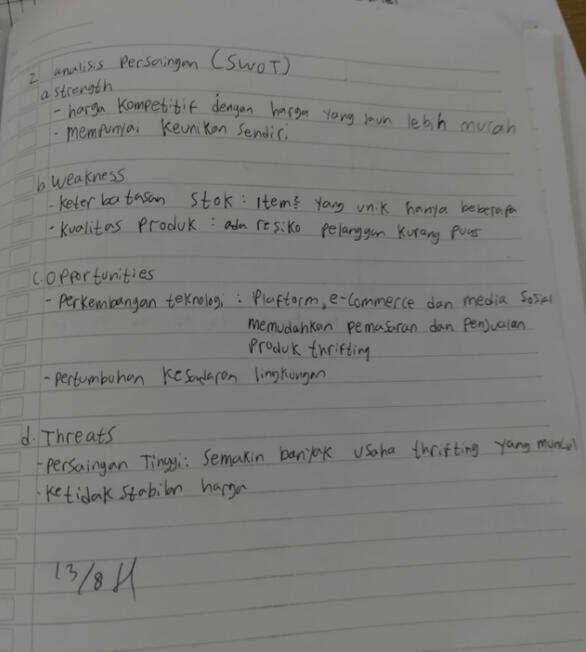 2. analisis Persaingan (SWOT)
a. Strength
- harga Kompetitif dengan harga yang jaun lebih murah
- mempunyai Keunikan Sendiri
b. Weakness
- Keterbatasan Stok : Items yang unik hanya beberapa
- Kualitas Produk : ada resiko pelanggan Kurang Puas
C. Opportunities
- Perkembangan teknologi : Plaftorm, e-Commerce dan media Sosial
memudahkan pemasaran dan Penjualan
Produk thrifting
- Pertumbuhan Kesadaran lingkungan
d. Threats
- Persaingan Tinggi : Semakin banyak usaha thrifting yang muncul
- Ketidak Stabilan harga
13/8